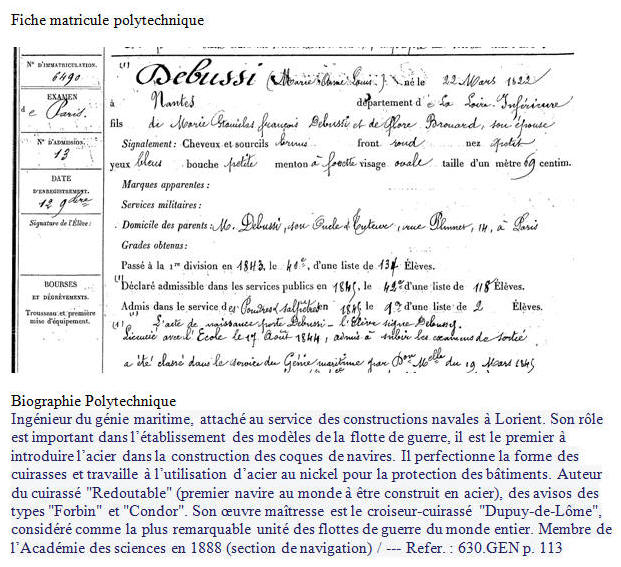 Fiche matricule polytechnique
N° D'IMMATRICULATION.
6490
EXAMEN
de Paris.
N° D'ADMISSION.
13
DATE
D'ENREGISTREMENT.
12 9bre
Signature de l'Élève :
BOURSES
ET DÉGRÈVEMENTS.
Trousseau et première
mise d'équipement.
(1) Debussi (Marie Anne Louis.) né le 22 Mars 1822
à Nantes département de La Loire Inférieure
fils de Marie Stanislas François Debussi et de Flore Brouard, son épouse
Signalement: Cheveux et sourcils bruns front rond nez petit
yeux bleus bouche petite menton à fossette visage ovale taille d'un mètre 69 centim.
Marques apparentes :
Services militaires :
Domicile des parents : M. Debussi, son Oncle & Tuteur, rue 14, à Paris
Grades obtenus:
Passé à la 1re division en 1843. le 40e, d'une liste de 134 Élèves.
(1) Déclaré admissible dans les services publics en 1845. le 42e d'une liste de 118 Élèves.
Admis dans le service des Poudres & salpêtres en 1845 le 1er d'une liste de 2 Élèves.
(1) L'acte de naissance porte Debussi - l'Élève signe Debussy.
Licencié avec l'Ecole le 17 Août 1844, admis à subir les examens de sortie
a été classé dans le service du Génie maritime par Don Melle du 19 Mars 1845
Biographie Polytechnique
Ingénieur du génie maritime, attaché au service des constructions navales à Lorient. Son rôle
est important dans l'établissement des modèles de la flotte de guerre, il est le premier à
introduire l'acier dans la construction des coques de navires. Il perfectionne la forme des
cuirasses et travaille à l'utilisation d'acier au nickel pour la protection des bâtiments. Auteur
du cuirassé "Redoutable" (premier navire au monde à être construit en acier), des avisos des
types "Forbin" et "Condor". Son œuvre maîtresse est le croiseur-cuirassé "Dupuy-de-Lôme",
considéré comme la plus remarquable unité des flottes de guerre du monde entier. Membre de
l'Académie des sciences en 1888 (section de navigation) / --- Refer. : 630.GEN p. 113